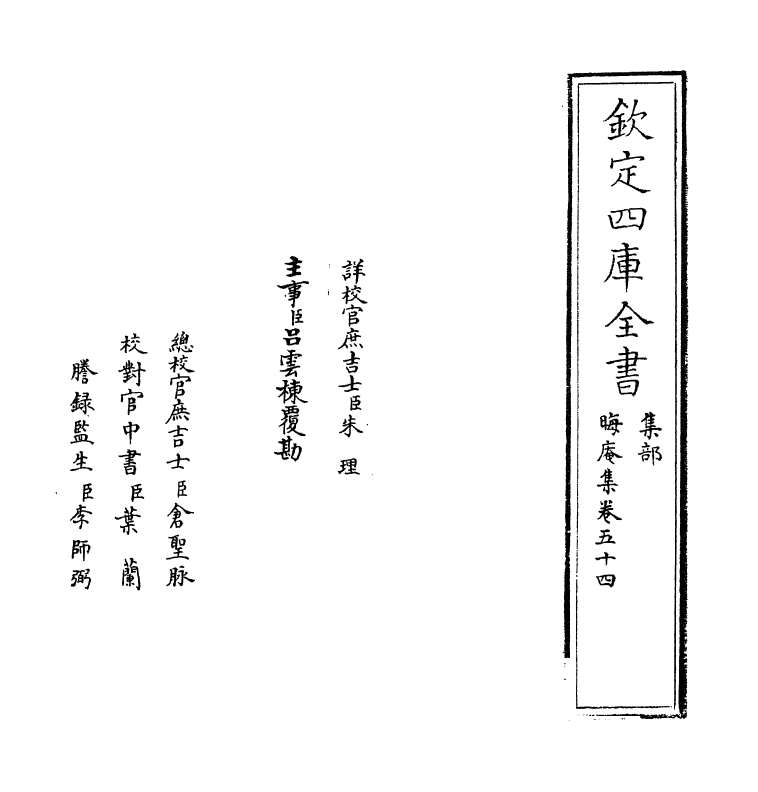 欽定四庫全書
集部
晦庵集卷五十四
詳校官庶吉士臣朱理
主事臣呂雲棟覆勘
總校官庶吉士臣倉聖脉
校對官中書臣葉蘭
謄錄監生臣李師弼